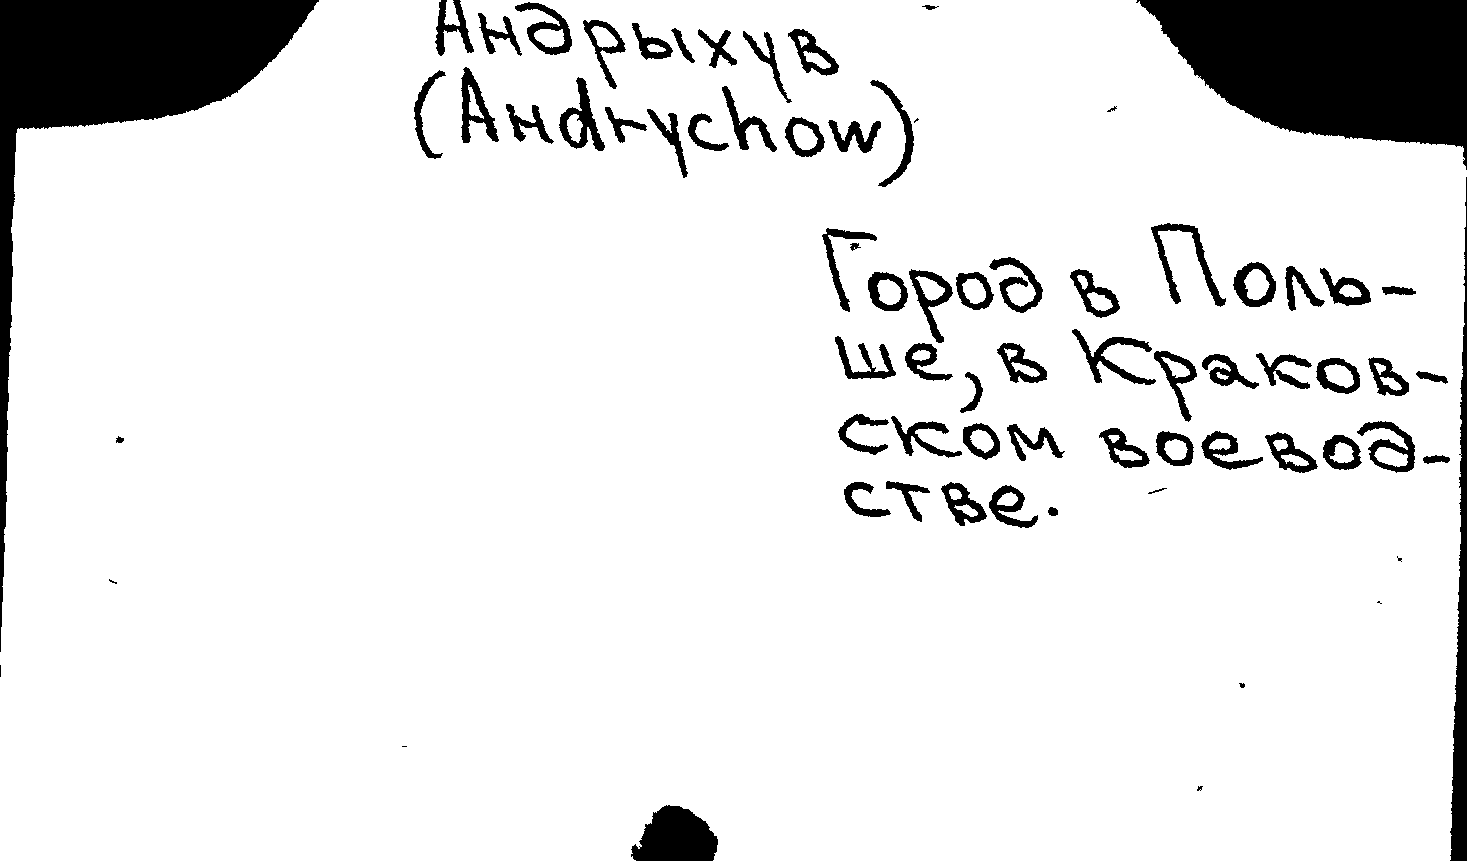 Андрыхув
(Andrychow)
Город в Поль-
ше, в Краков-
ском воевод-
стве.